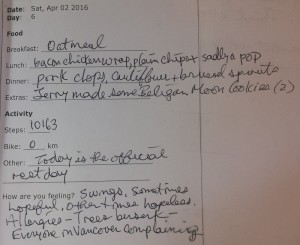 Date: Sat, Apr 02 2016
Day: 6
Food
Breakfast: Oatmeal
Lunch: bacon chicken wrap, plain chips + sadly a pop
Dinner: pork chops, cauliflower + brussel sprouts
Extras: Jerry made some Beligan Moon Cookies (2)
Activity
Steps: 10163
Bike: 0 km
Other: Today is the official
rest day
How are you feeling? Swings, sometimes
hopeful, other times hopeless.
Allergies - Trees berserk -
Everyone in Vancouver complaining